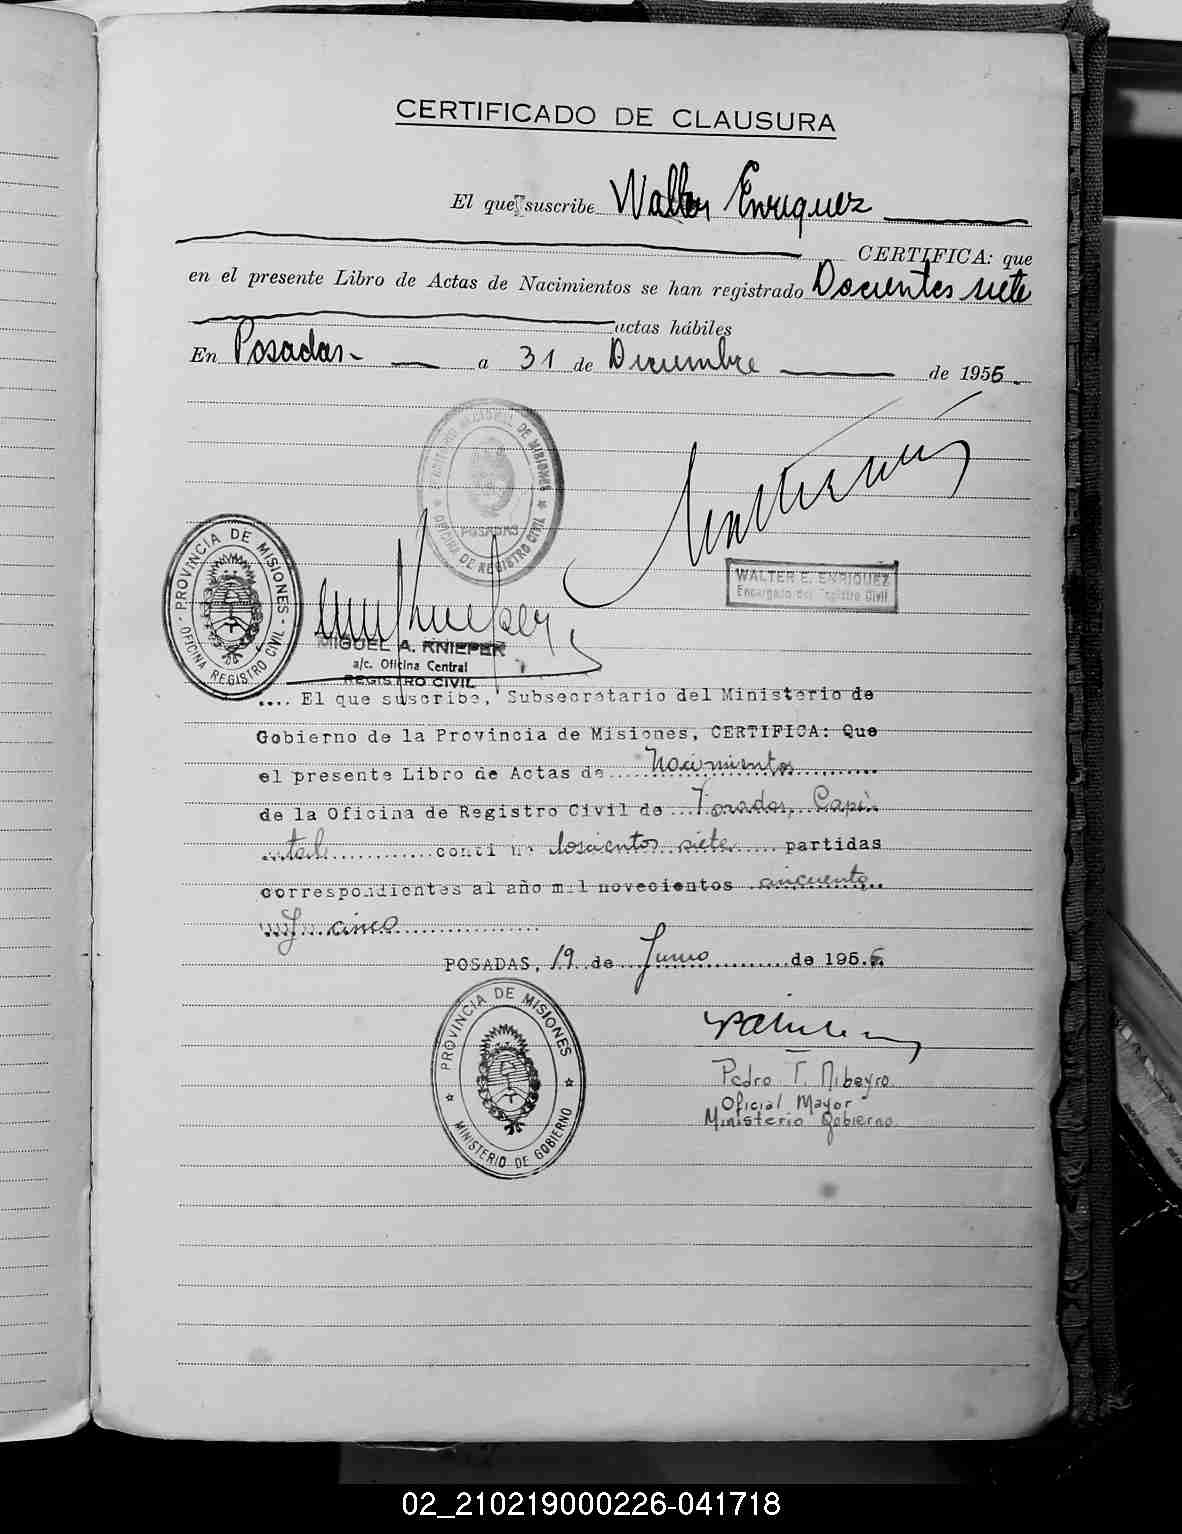 CERTIFICADO DE CLAUSURA
El que suscribe Walter Enriquez
CERTIFICA: que
en el presente Libro de Actas de Nacimientos se han registrado Docientos siete
actas hábiles
En Posadas a 31 de Diciembre de 1955.
TERRITORIO NACIONAL DE MISIONES
POSADAS
OFICINA DE REGISTRO CIVIL
PROVINCIA DE MISIONES
OFICINA REGISTRO CIVIL
WALTER E. ENRIQUEZ
Encargado del Registro Civil
MIGUEL A. KNIEPER
a/c. Oficina Central
REGISTRO CIVIL
.... El que suscribe, Subsecretario del Ministerio de
Gobierno de la Provincia de Misiones, CERTIFICA: Que
el presente Libro de Actas de Nacimientos
de la Oficina de Registro Civil de Posadas, Capi-
tal conti dosientos siete partidas
correspondientes al año mil novecientos cincuenta
y cinco
POSADAS, 19 de Junio de 1956.
PROVINCIA DE MISIONES
MINISTERIO DE GOBIERNO
Pedro T. Ribeyro
Oficial Mayor
Ministerio Gobierno
02_210219000226-041718